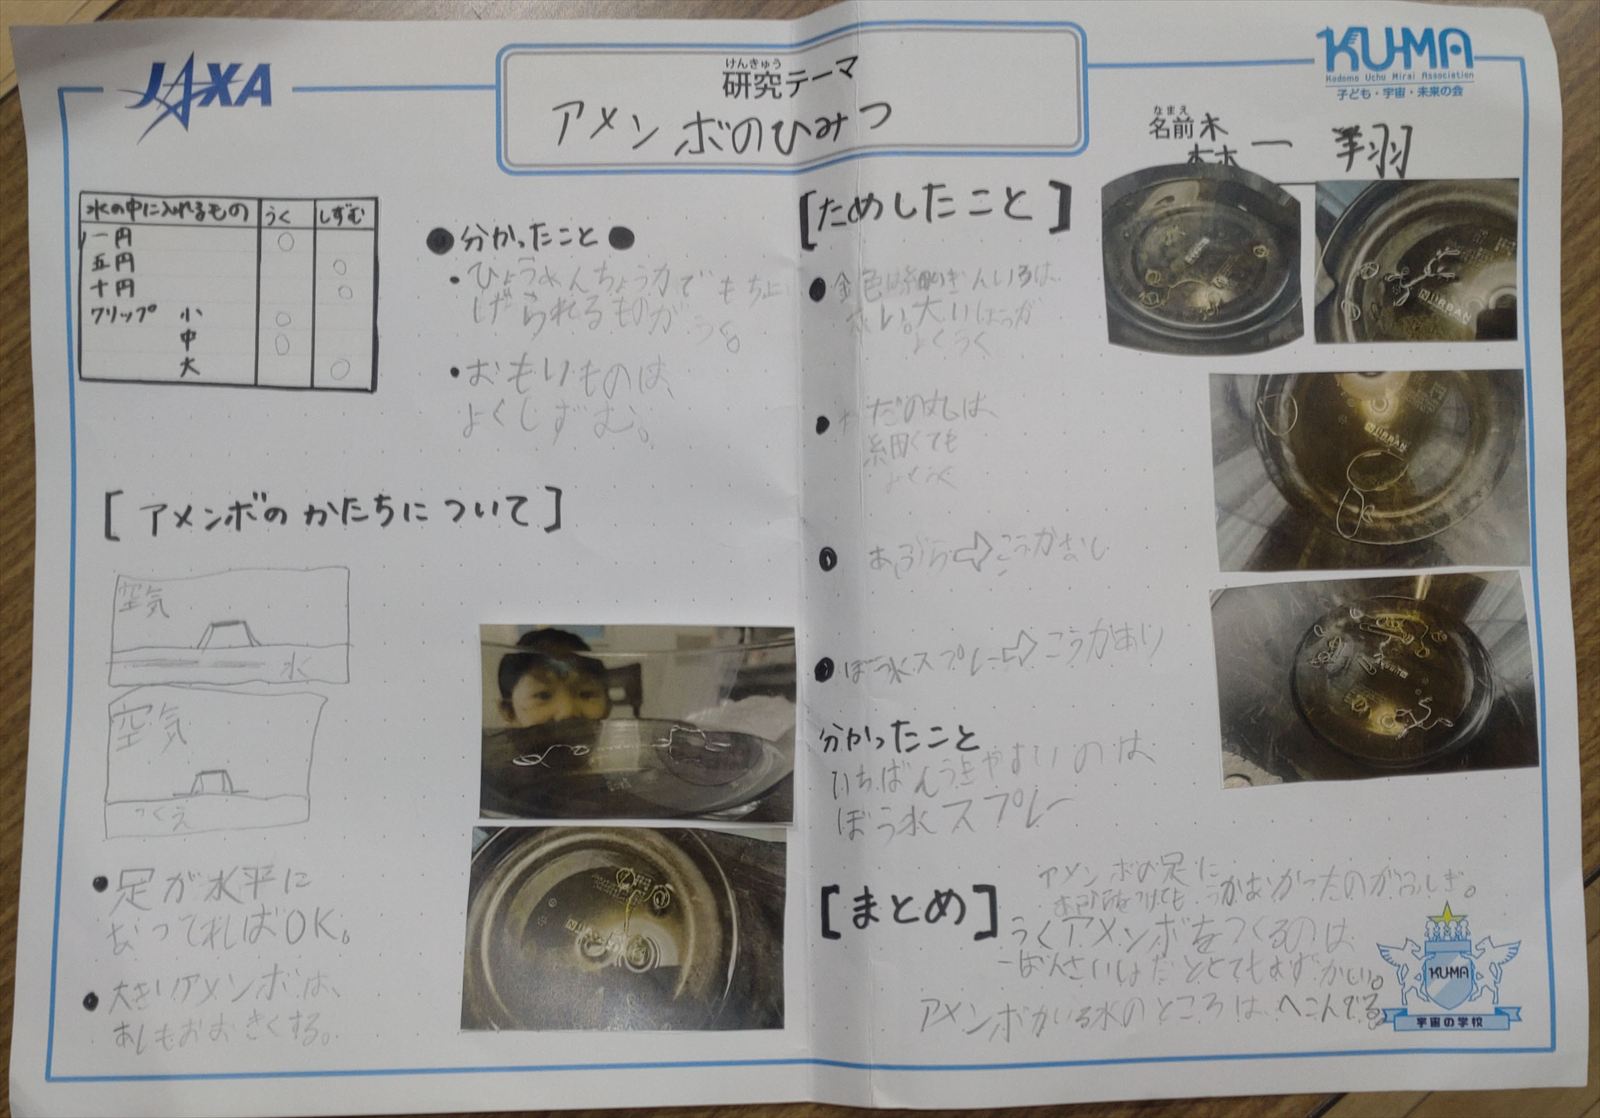 JAXA
けんきゅう
研究テーマ
アメンボのひみつ
KU-MA
Kodomo Uchu Mirai Association
子ども・宇宙・未来の会
なまえ
名前 森 一 翔
水の中に入れるもの うく しずむ
一円 ○
五円 ○
十円 ○
クリップ 小 ○
中 ○
大 ○
●分かったこと●
・ひょうめんちょう力でもちよ
げられるものがうく。
・おもいものは、
よくしずむ。
[アメンボのかたちについて]
空気
水
空気
つくえ
●足が水平に
なってればOK。
●大きいアメンボは、
あしもおおきくする。
[ためしたこと]
●金色は細め ぎんいろは、
太い。大いほうが
よくうく
● だの丸は、
細くても
よくうく
●あぶら⇨こうかなし
●ぼう水スプレー⇨こうかあり
分かったこと
いちばんうきやすいのは、
ぼう水スプレー
[まとめ]
アメンボの足に
うかなかったのがふしぎ。
うくアメンボをつくるのは
一ばんさいしょだととてもむずかしい。
アメンボがいる水のところは、へこんでる。
KU-MA
宇宙の学校